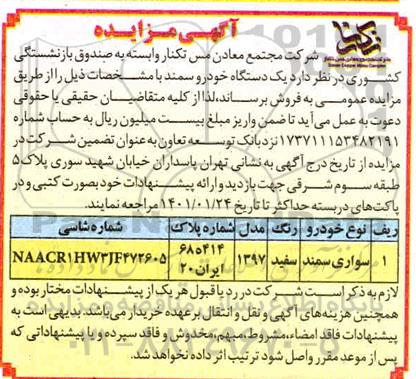 آگهی مزایده
شرکت مجتمع معادن مس تکنار وابسته به صندوق بازنشستگی
کشوری در نظر دارد یک دستگاه خودرو سمند با مشخصات ذیل را از طریق
مزایده عمومی به فروش برساند، لذا از کلیه متقاضیان حقیقی یا حقوقی
دعوت به عمل می آید تا ضمن واریز مبلغ بیست میلیون ریال به حساب شماره
۱۷۳۷۱۱۱۵۳۴۸۲۱۹۱ نزد بانک توسعه تعاون به عنوان تضمین شرکت در
مزایده از تاریخ درج آگهی به نشانی تهران پاسداران خیابان شهید سوری پلاک ۵
طبقه سوم شرقی جهت بازدید و ارائه پیشنهادات خود بصورت کتبی و در
پاکت‌های دربسته حداکثر تا تاریخ ۱۴۰۱/۰۱/۲۴ مراجعه نمایند.
ریف نوع خودرو رنگ مدل شماره پلاک شماره شاسی
۱ سواری سمند سفید ۱۳۹۷ ۶۸۵۴۱۴ ایران ۲۰ NAACR1HW3JF472605
لازم به ذکر است شرکت در رد یا قبول هر یک از پیشنهادات مختار بوده و
همچنین هزینه‌های آگهی و نقل و انتقال بر عهده خریدار می‌باشد. بدیهی است به
پیشنهادات فاقد امضاء، مشروط، مبهم، مخدوش و فاقد سپرده و یا پیشنهاداتی که
پس از موعد مقرر واصل شود ترتیب اثر داده نخواهد شد.